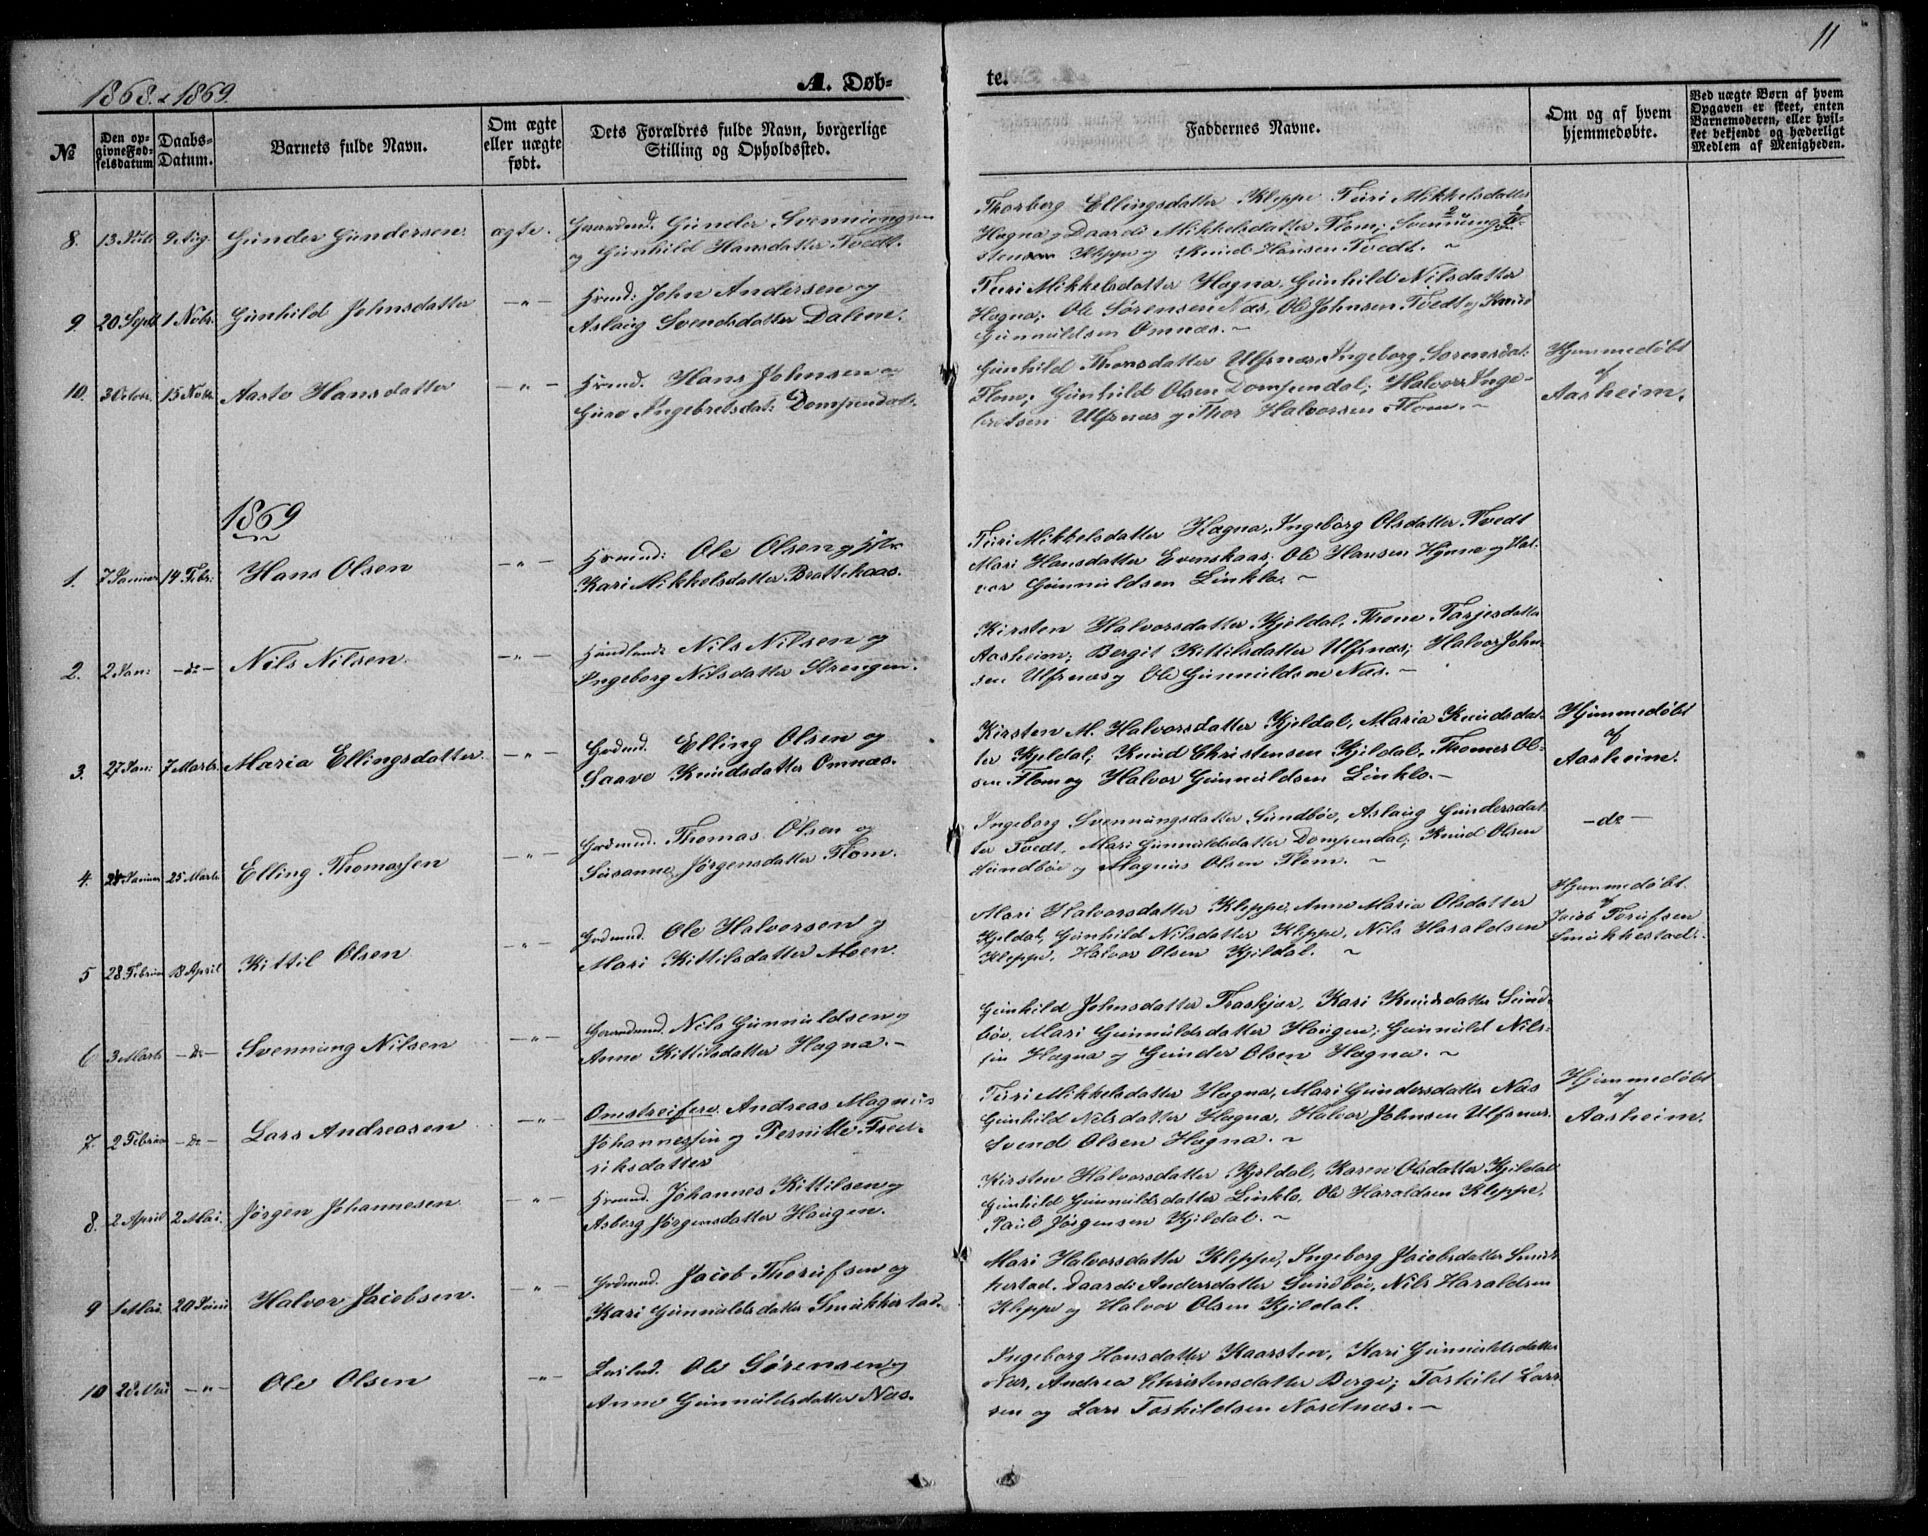 11
1868. & 1869.
A. Døb-
te.
No
Den op-
givne Fød-
selsdatum
Daabs-
Datum.
Barnets fulde Navn.
Om ægte
eller uægte
født.
Dets Forældres fulde Navn, borgerlige
Stilling og Opholdssted.
Faddernes Navne.
Om og af hvem
hjemmedøbte.
Ved uægte Børn af hvem
Opgaven er skeet, enten
Barnemoderen, eller hvil-
ket bekjendt og hæderligt
Medlem af Menigheden.
8. 13 Juli 9 Aug. Gunder Gundersen. ægte. Gunder Svennungsen
og Gunhild Hansdatter Tvedt.
Thorberg Ellingsdatter Kleppe, Turi Mikkelsdatter
Hagna, Daardi Mikkelsdatter Flom; Svennung
stensen Kleppe og Knud Hansen Tvedt. ~
9. 20 Sept. 1 Novbr. Gunhild Johnsdatter -"- Hrmd: John Andersen og
Aslaug Svendsdatter Dalen.
Turi Mikkelsdatter Hagna, Gunhild Nilsdatter
Hagna; Ole Sørensen Næs, Ole Johnsen Tvedt og Knud
Gunnuldsen Omnæs. ~
10. 3 Octobr. 15 Novbr. Aaste Hansdatter -"- Hrmd. Hans Johnsen og
Guro Ingebretsdat: Dompendal.
Gunhild Thorsdatter Ulfsnæs, Ingeborg Sorensdat:
Flom; Gunhild Olsen Dompendal; Halvor Inge-
bretsen Ulfsnæs og Thor Halvorsen Flom. ~
Hjemmedøbt
af
Aasheim.
1869
1. 7 Januar 14 Febr: Hans Olsen -"- Hrmd: Ole Olsen og
Kari Mikkelsdatter Brattekaas.
Turi Mikkelsdatter Hagna, Ingeborg Olsdatter Tvedt
Mari Hansdatter Evenskaas; Ole Hansen Hagna og Hal-
vor Gunnuldsen Linklo. ~
2. 2 Jan: -do- Nils Nilsen. -"- Nils Nilsen og
Ingeborg Nilsdatter Strengen.
Kirsten Halvorsdatter Kjeldal, Thone Tarjesdatter
Aasheim; Bergit Kittilsdatter Ulfsnæs; Halvor John-
sen Ulfsnæs og Ole Gunnuldsen Næs. -
3. 27 Jan: 7 Marts. Maria Ellingsdatter. -"- Elling Olsen og
Saave Knudsdatter Omnæs.
Kirsten M. Halvorsdatter Kjeldal, Maria Knudsdat-
ter Kjeldal; Knud Christensen Kjeldal, Thomas Ol-
sen Flom og Halvor Gunnuldsen Linklo. -
Hjemmedøbt
af
Aasheim.
4. 24 Januar 25 Marts Elling Thomassen -"- Thomas Olsen og
Susanne Jørgensdatter Flom.
Ingeborg Svennungsdatter Sundbøe, Aslaug Gundersdat-
ter Tvedt, Mari Gunnuldsdatter Dompendal; Knud Olsen
Sundbøe og Magnus Olsen Flom. ~
-do-
5 28 Februar 18 April Kittil Olsen -"- Ole Halvorsen og
Mari Kittilsdatter Moen.
Mari Halvorsdatter Kleppe, Anne Maria Olsdatter
Kjeldal, Gunhild Nilsdatter Kleppe, Nils Haraldsen
Kleppe, Halvor Olsen Kjeldal. ~
Hjemmedøbt
af
Jacob Torufsen
Smukkestad.
6 3 Marts -do- Svennung Nilsen -"- Nils Gunnuldsen og
Anne Kittilsdatter Hagna. -
Gunhild Johnsdatter Traskjær, Kari Knudsdatter Sund-
bøe, Mari Gunnuldsdatter Haugen; Gunnuld Nils-
sen Hagna og Gunder Olsen Hagna. ~
7. 2 Februar -do- Lars Andreasen -"- Omstreifere Andreas Magnus
Johannessen og Pernille Fred-
riksdatter
Turi Mikkelsdatter Hagna, Mari Gundersdatter Næs
Gunhild Nilsdatter Hagna, Halvor Johnsen Ulfsnæs.
Svend Olsen Hagna. ~
Hjemmedøbt
af
Aasheim.
8. 2 April 2 Mai. Jørgen Johannesen -"- Hrmd. Johannes Kittilsen og
Asberg Jørgensdatter Haugen.
Kirsten Halvorsdatter Kjeldal, Karen Olsdatter Kjeldal
Gunhild Gunnuldsdatter Linklo, Ole Haraldsen Kleppe,
Paul Jørgensen Kjeldal. ~
9 Mai. 20 Juni Halvor Jacobsen. -"- Jacob Thorufsen og
Kari Gunnuldsdatter Smukkestad.
Mari Halvorsdatter Kleppe, Ingeborg Jacobsdatter Smuk-
kestad, Daardi Andersdatter Sundbøe, Nils Haraldsen
Kleppe og Halvor Olsen Kjeldal.
10 28 Mai -"- Ole Olsen -"- Ole Sørensen og
Anne Gunnuldsdatter Næs.
Ingeborg Hansdatter Kaarsten, Kari Gunnuldsdatter
Næs, Andrea Christensdatter Berge; Torkild Lars-
sen og Lars Torkildsen Nordnæs. ~